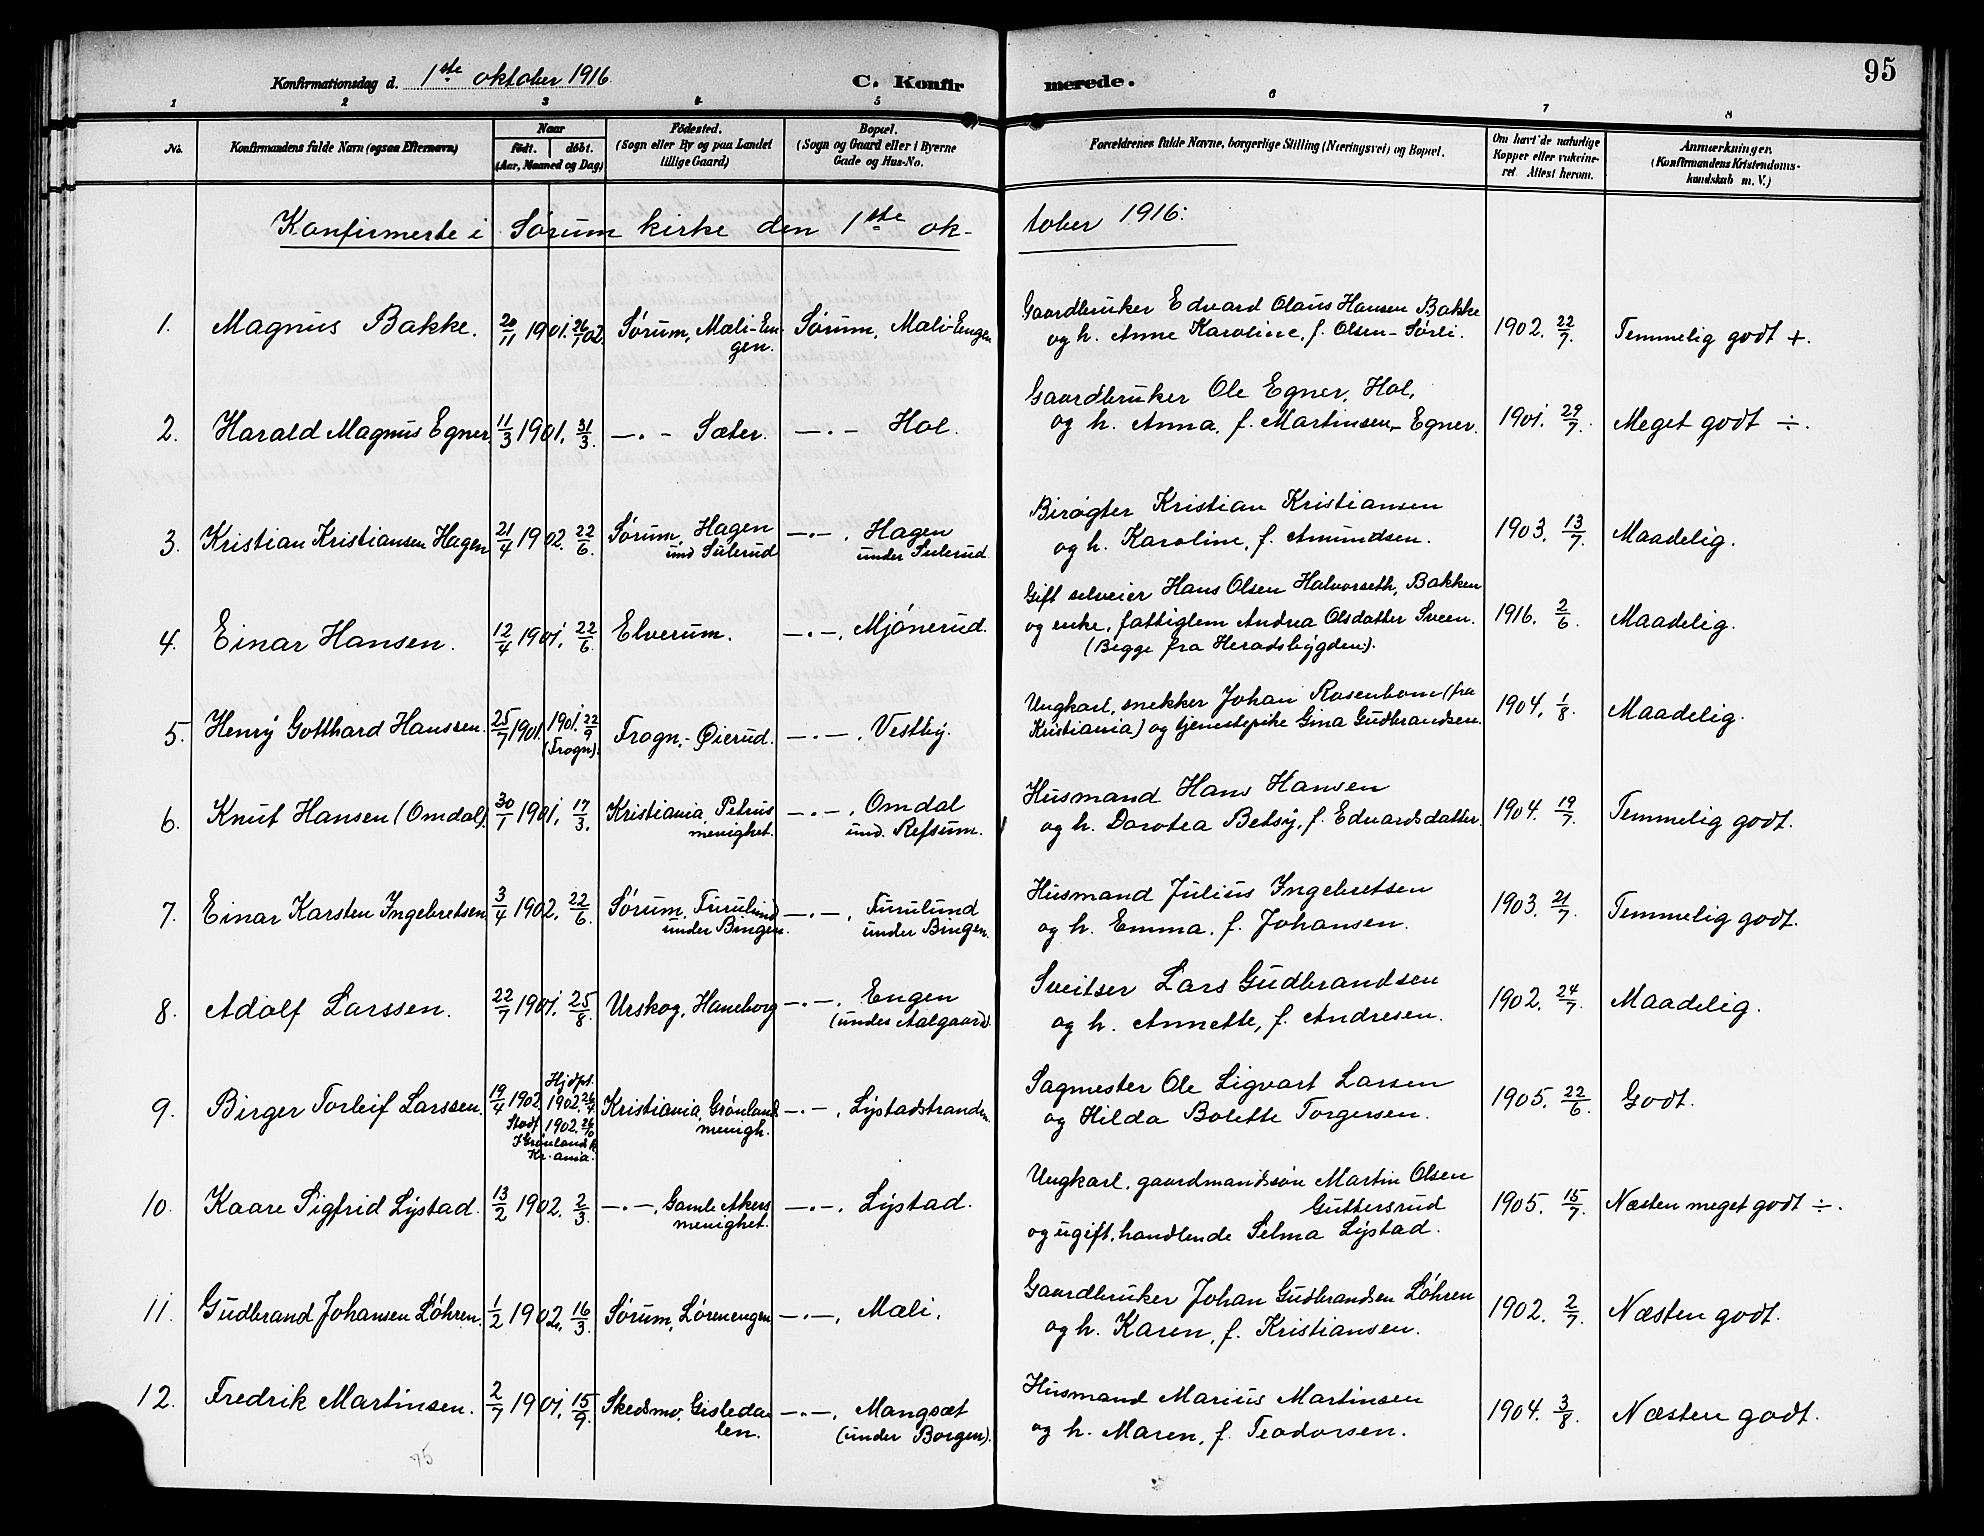 Konfirmationsdag d. 1ste oktober 1916
C. Konfirmerede.
95
1 2 3 4 5 6 7 8
No.
Konfirmandens fulde Navn (ogsaa Efternavn)
Naar
födt. döbt.
(Aar, Maaned og Dag)
Födested.
(Sogn eller By og paa Landet
tillige Gaard)
Bopæl.
(Sogn og Gaard eller i Byerne
Gade og Hus-No.
Forældrenes fulde Navne, borgerlige Stilling (Næringsvei) og Bopæl.
Om havt de naturlige
Kopper eller vakcine-
ret Attest herom.
Anmærkninger.
(Konfirmandens Kristendoms-
kundskab m. V.)
Konfirmerte i Sørum kirke den 1ste ok-
tober 1916:
1. Magnus Bakke. 20/11 1901. 26/1 02. Sørum, Mæli-En-
gen.
Sørum, Mæli-Engen
Gaardbruker Edvard Olaus Hansen Bakke
og h. Anne Karoline, f. Olsen-Sørli.
1902. 22/7. Temmelig godt +.
2. Harald Magnus Egner 11/3 1901. 31/3. —.— Sæter. —.— Hol.
Gaardbruker Ole Egner, Hol,
og h. Anna, f. Martinsen-Egner.
1901. 29/7. Meget godt ÷.
3. Kristian Kristiansen Hagen 21/4 1902. 22/6. Sørum, Hagen
und Sulerud
—.—, Hagen
under Sulerud
Birøgter Kristian Kristiansen
og h. Karoline, f. Amundsen.
1903. 13/7. Maadelig.
4. Einar Hansen. 12/4 1901. 22/6. Elverum. —.—, Mjønerud.
Gift selveier Hans Olsen Halvorseth, Bakken
og enke, fattiglem Andrea Olsdatter Sveen.
(Begge fra Heradsbygden).
1916. 2/6. Maadelig.
5. Henry Gotthard Hanssen. 25/7 1901. 1901. 22/9
(Frogn).
Frogn.- Øierud. —.—, Vestby.
Ungkarl, snekker Johan Rosenbom (fra
Kristiania) og tjenestepike Gina Gudbrandsen.
1904. 1/8. Maadelig.
6. Knut Hansen (Omdal). 30/1 1901. 17/3. Kristiania, Petrus
menighet.
—.—, Omdal
und. Refsum.
Husmand Hans Hansen
og h. Dorotea Betsy, f. Edvardsdatter.
1904. 19/7. Temmelig godt.
7. Einar Karsten Ingebretsen 3/4 1902. 22/6. Sørum, Furulund
under Bingen.
—.—, Furulund
under Bingen.
Husmand Julius Ingebretsen
og h. Emma, f. Johansen.
1903. 21/7. Temmelig godt.
8. Adolf Larssen. 22/7 1901. 25/8. Urskog, Haneborg —.—, Engen
(under Aalgaard).
Sveitser Lars Gudbrandsen
og h. Annette, f. Andresen.
1902. 24/7. Maadelig.
9. Birger Torleif Larssen. 19/4 1902 Hjdpt.
1902. 26/4.
Stadf. 1902. 26/10
I Grønland k.
Kr.ania.
Kristiania, Grønland
menigh.
—.—, Lystadstranden
Sagmester Ole Sigvart Larsen
og Hilda Bolette Torgersen.
1905. 22/6. Godt.
10. Kaare Sigfrid Lystad. 13/2 1902. 2/3. —.—, Gamle Akers
menighet.
—.—, Lystad.
Ungkarl, gaardmandssøn Martin Olsen
Guttersrud
og ugift, handlende Selma Lystad.
1905. 15/7. Næsten meget godt ÷.
11. Gudbrand Johansen Løhren. 1/2 1902. 16/3. Sørum, Lørenengen —.—, Mæli.
Gaardbruker Johan Gudbrandsen Løhren
og h. Karen, f. Kristiansen.
1902. 2/7. Næsten godt.
12. Fredrik Martinsen. 2/7 1901. 15/9. Skedsmo, Gisleda-
len.
—.—, Mangsæt
(under Borgen).
Husmand Marius Martinsen
og h. Maren, f. Teodorsen.
1904. 3/8. Næsten godt.